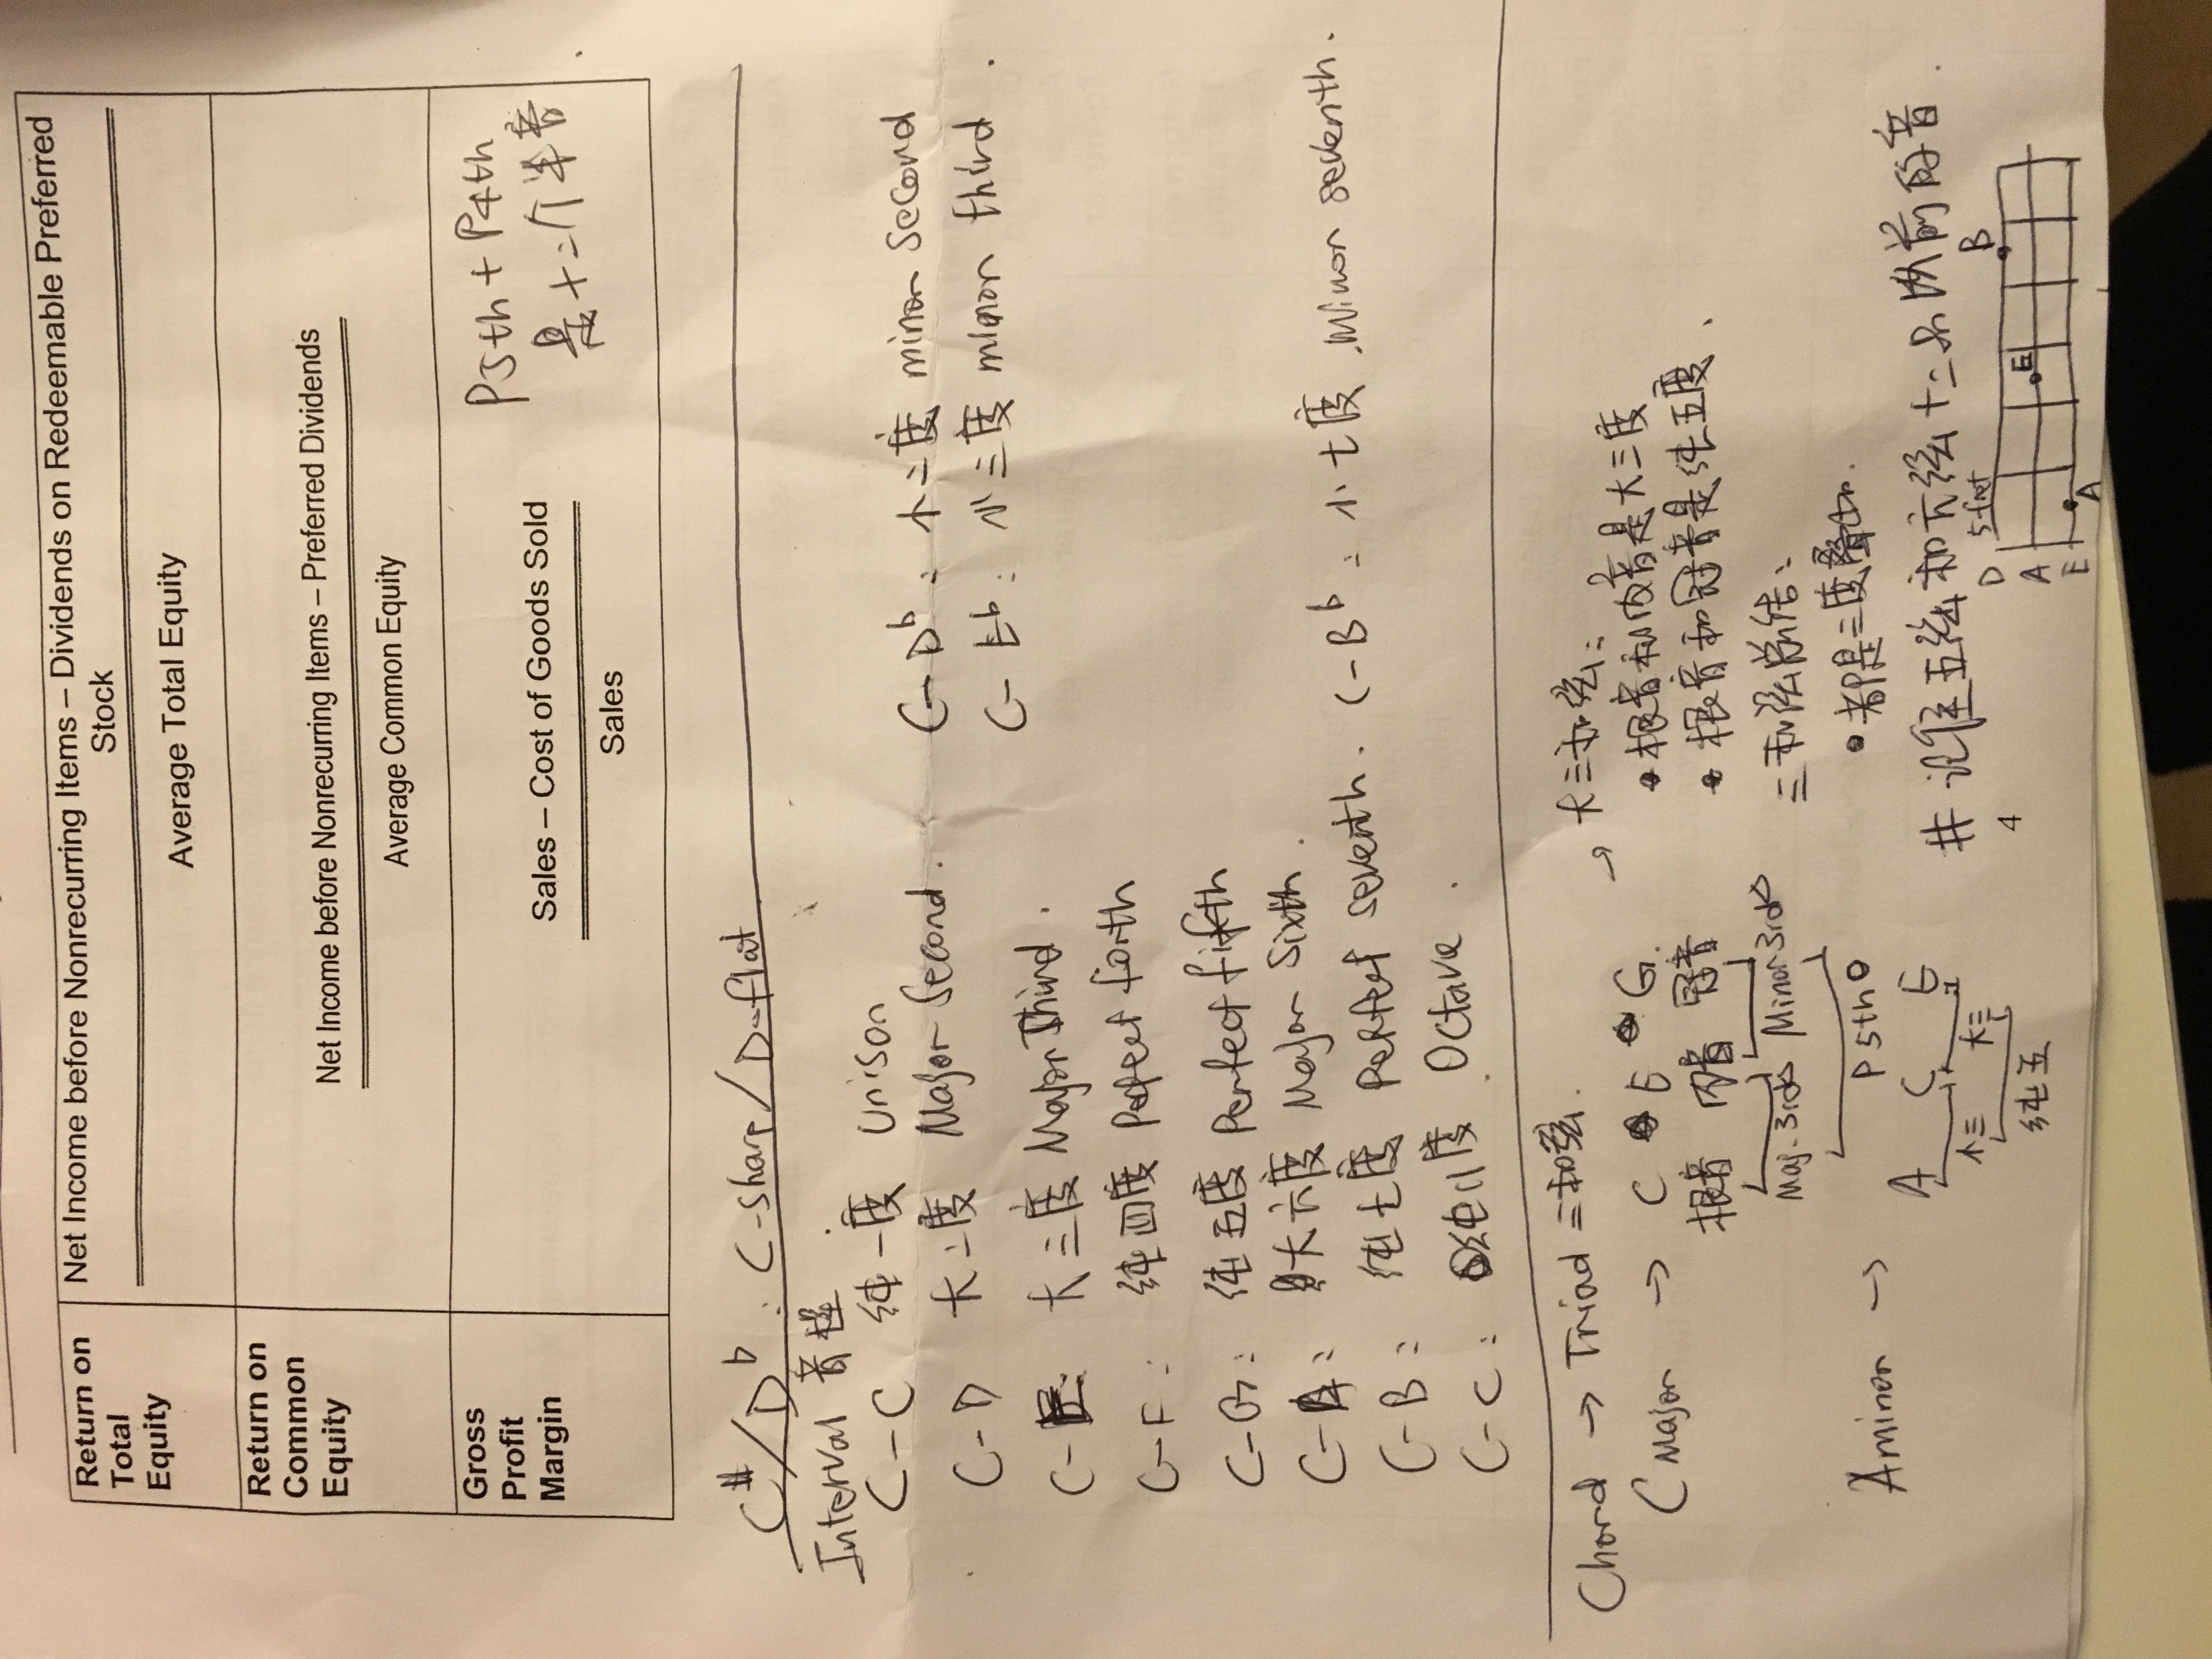 Return on Total Equity
Net Income before Nonrecurring Items – Dividends on Redeemable Preferred
Stock
Average Total Equity
Return on Common Equity
Net Income before Nonrecurring Items – Preferred Dividends
Average Common Equity
Gross Profit Margin
Sales – Cost of Goods Sold
Sales
P5th + P4th
是十二个半音
C#/Db: C-sharp/D-flat
Interval 音程
C-C 纯一度 Unison
C-D 大二度 Major Second.
C-Db: 小二度 minor Second
C-E: 大三度 Major Third.
C-Eb: 小三度 minor third.
C-F: 纯四度 Perfect forth
C-G: 纯五度 Perfect fifth
C-A: 大六度 Major Sixth.
C-B: 纯七度 Perfect seventh. C-Bb: 小七度, Minor seventh.
C-C: 纯八度 Octave.
Chord → Triad 三和弦.
C Major → C E G.
根音 内音 冠音
Maj. 3rds Minor 3rds
P 5th
→ 大三和弦:
• 根音和内音是大三度
• 根音和冠音是纯五度.
三和弦总结:
• 都是三度
A minor → A C E
小三 大三
纯五
# 记住五弦和六弦十二品以前的音.
4
D
A
E
5 fret
A
E
B